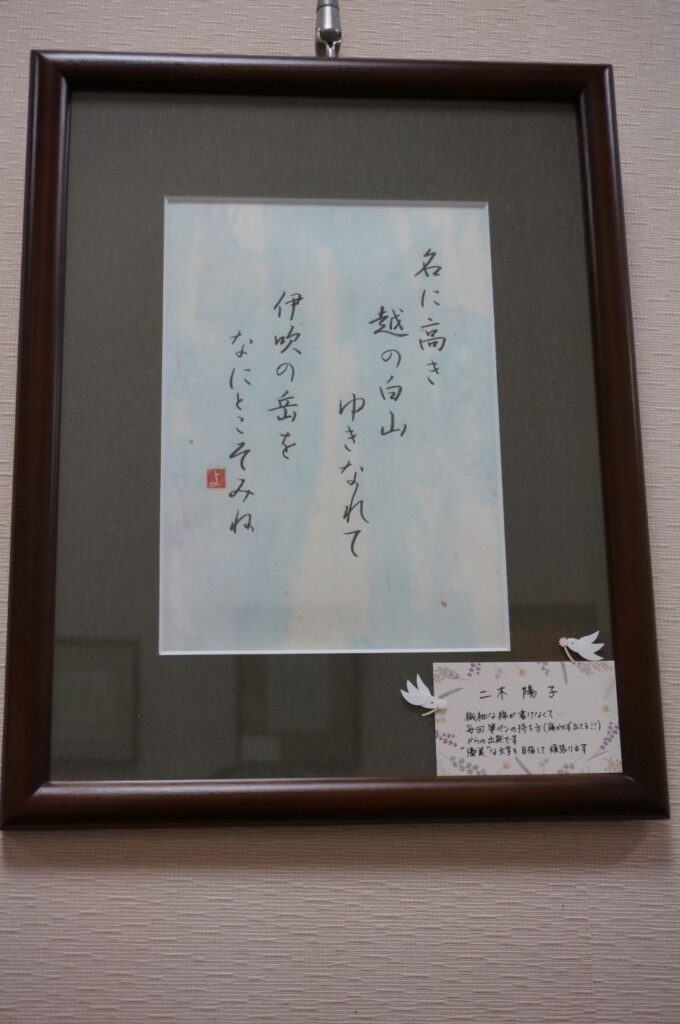 名に高き
越の白山
ゆきなれて
伊吹の岳を
なにとこそみね
よ
二木 陽子
繊細な線が書けなくて…
毎回 筆ペンの持ち方(寝かせず立てる!!)
からの出発です
"優美"な文字を目指して頑張ります